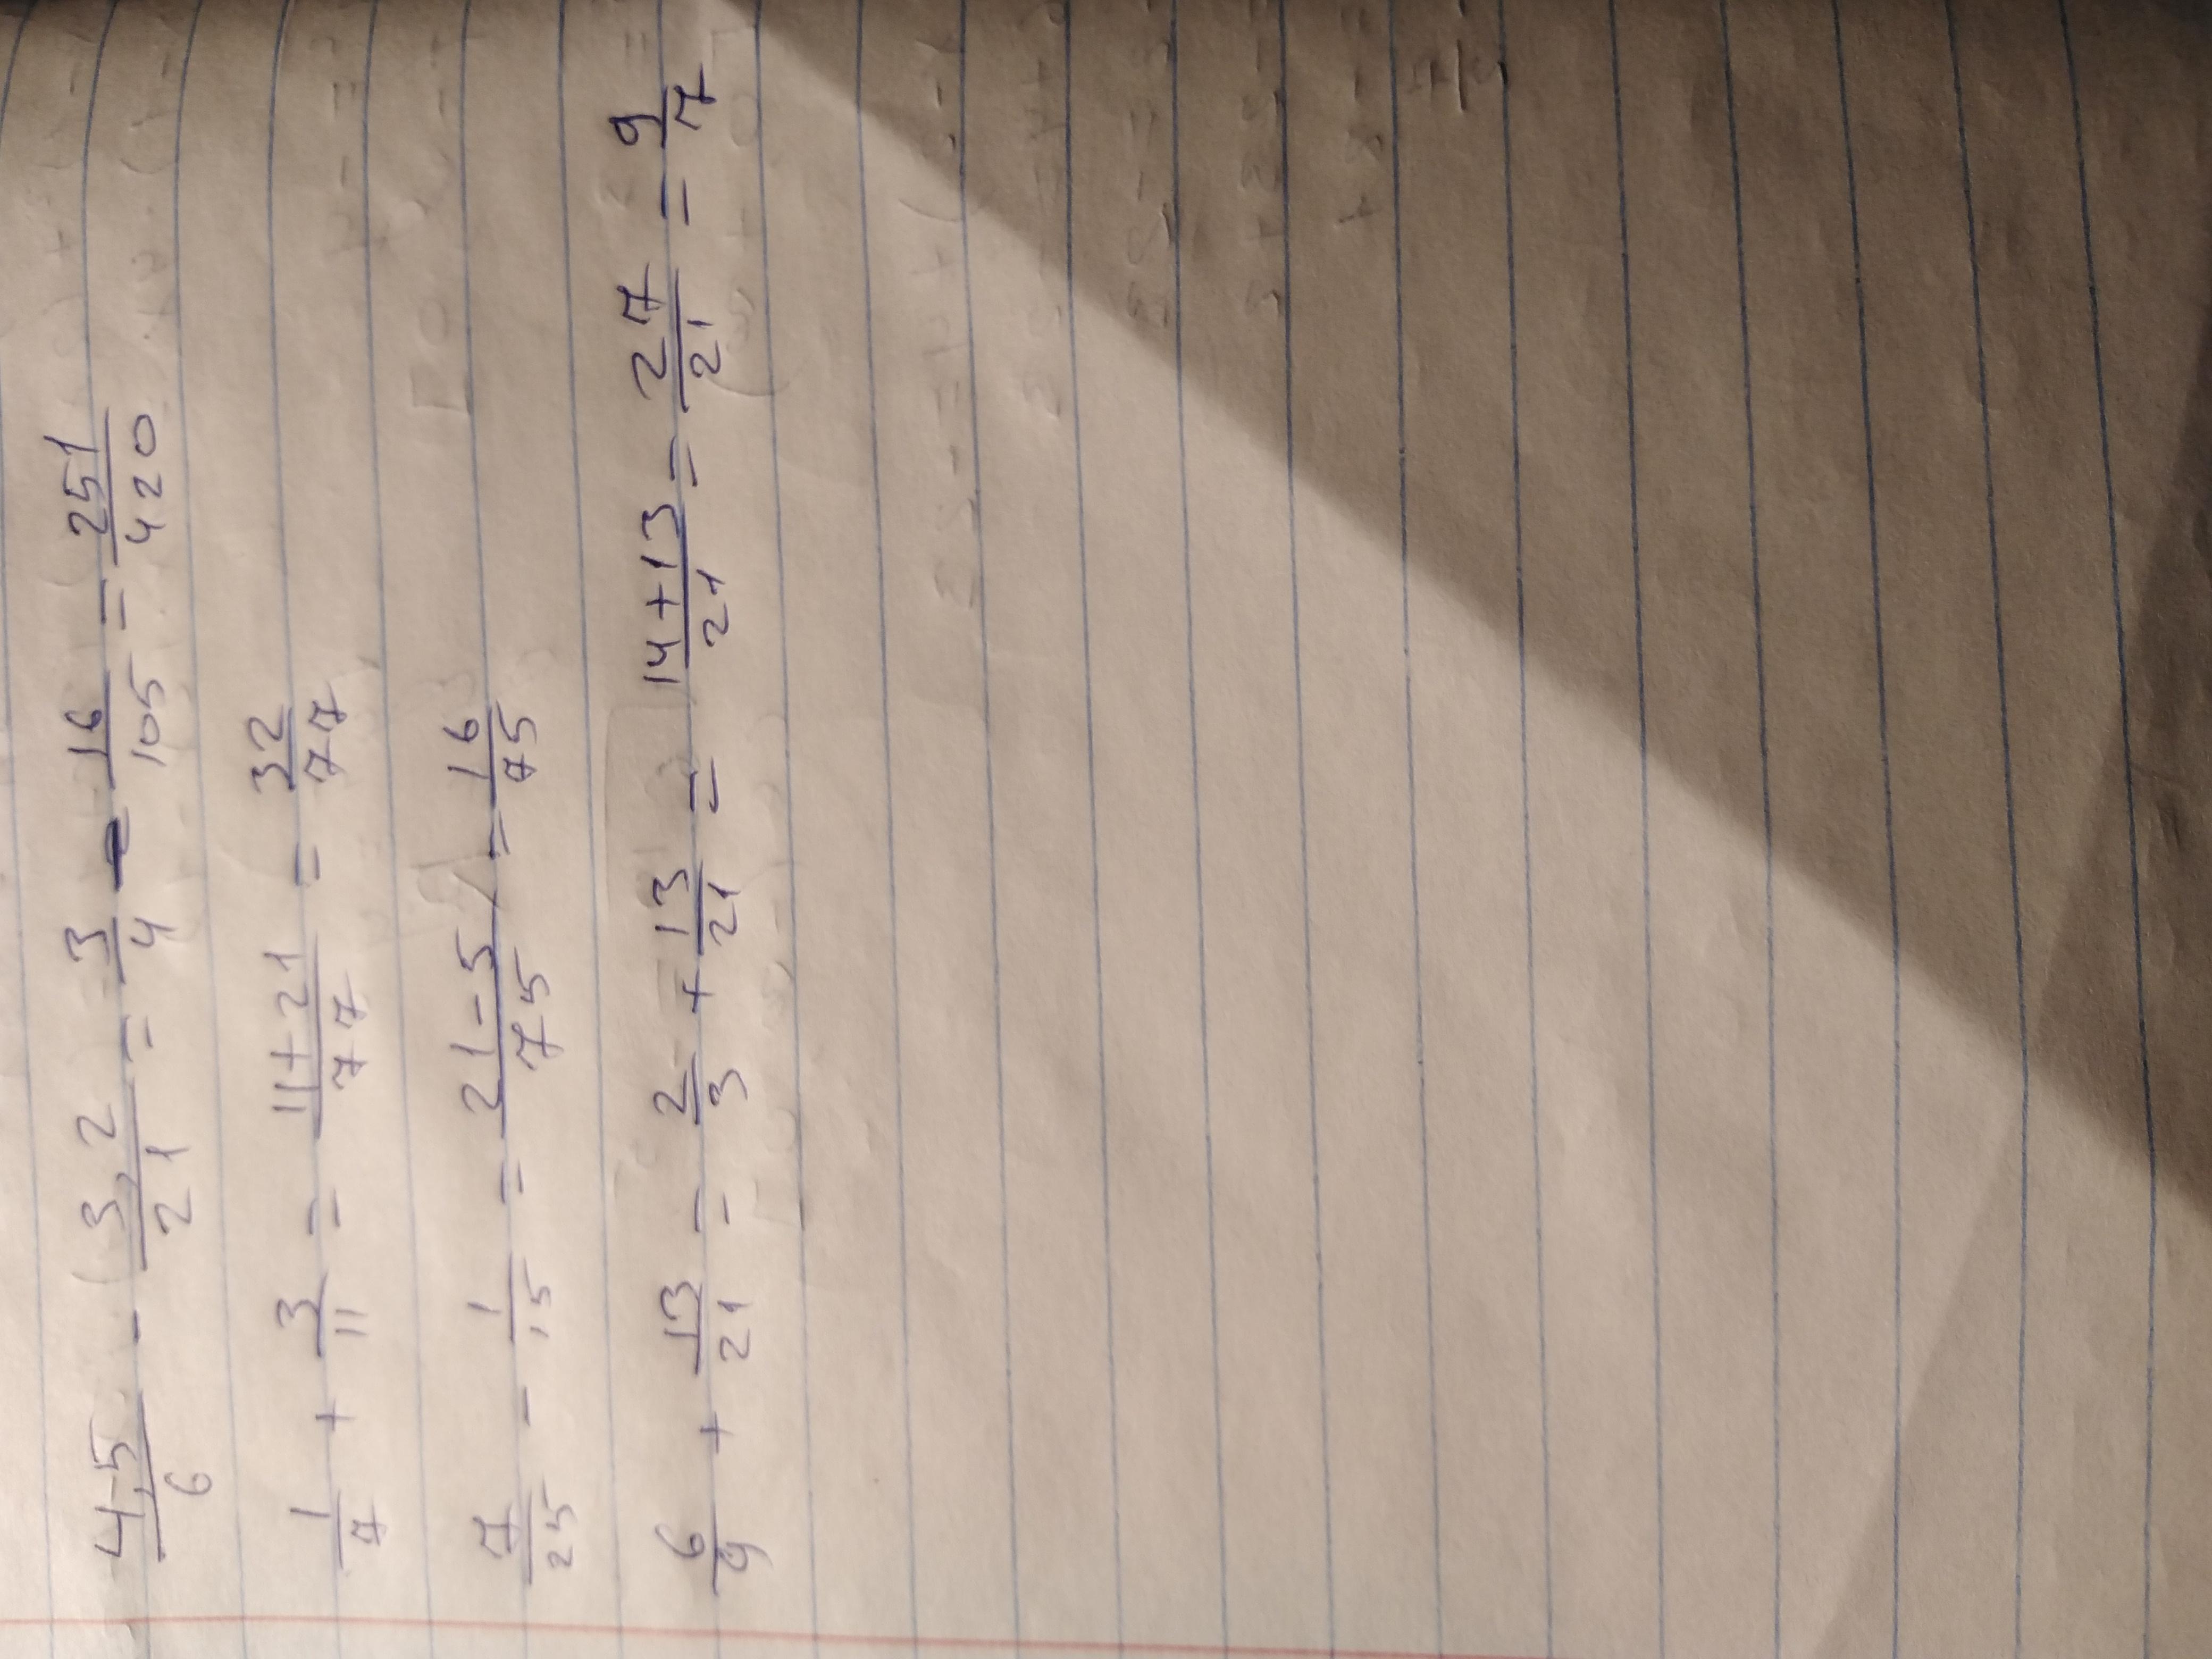 4,5/6 - 3,2/21 = 3/4 - 16/105 = 251/420
1/7 + 3/11 = 11+21/77 = 32/77
7/25 - 1/15 = 21-5/75 = 16/75
6/9 + 13/21 = 2/3 + 13/21 = 14+13/21 = 27/21 = 9/7